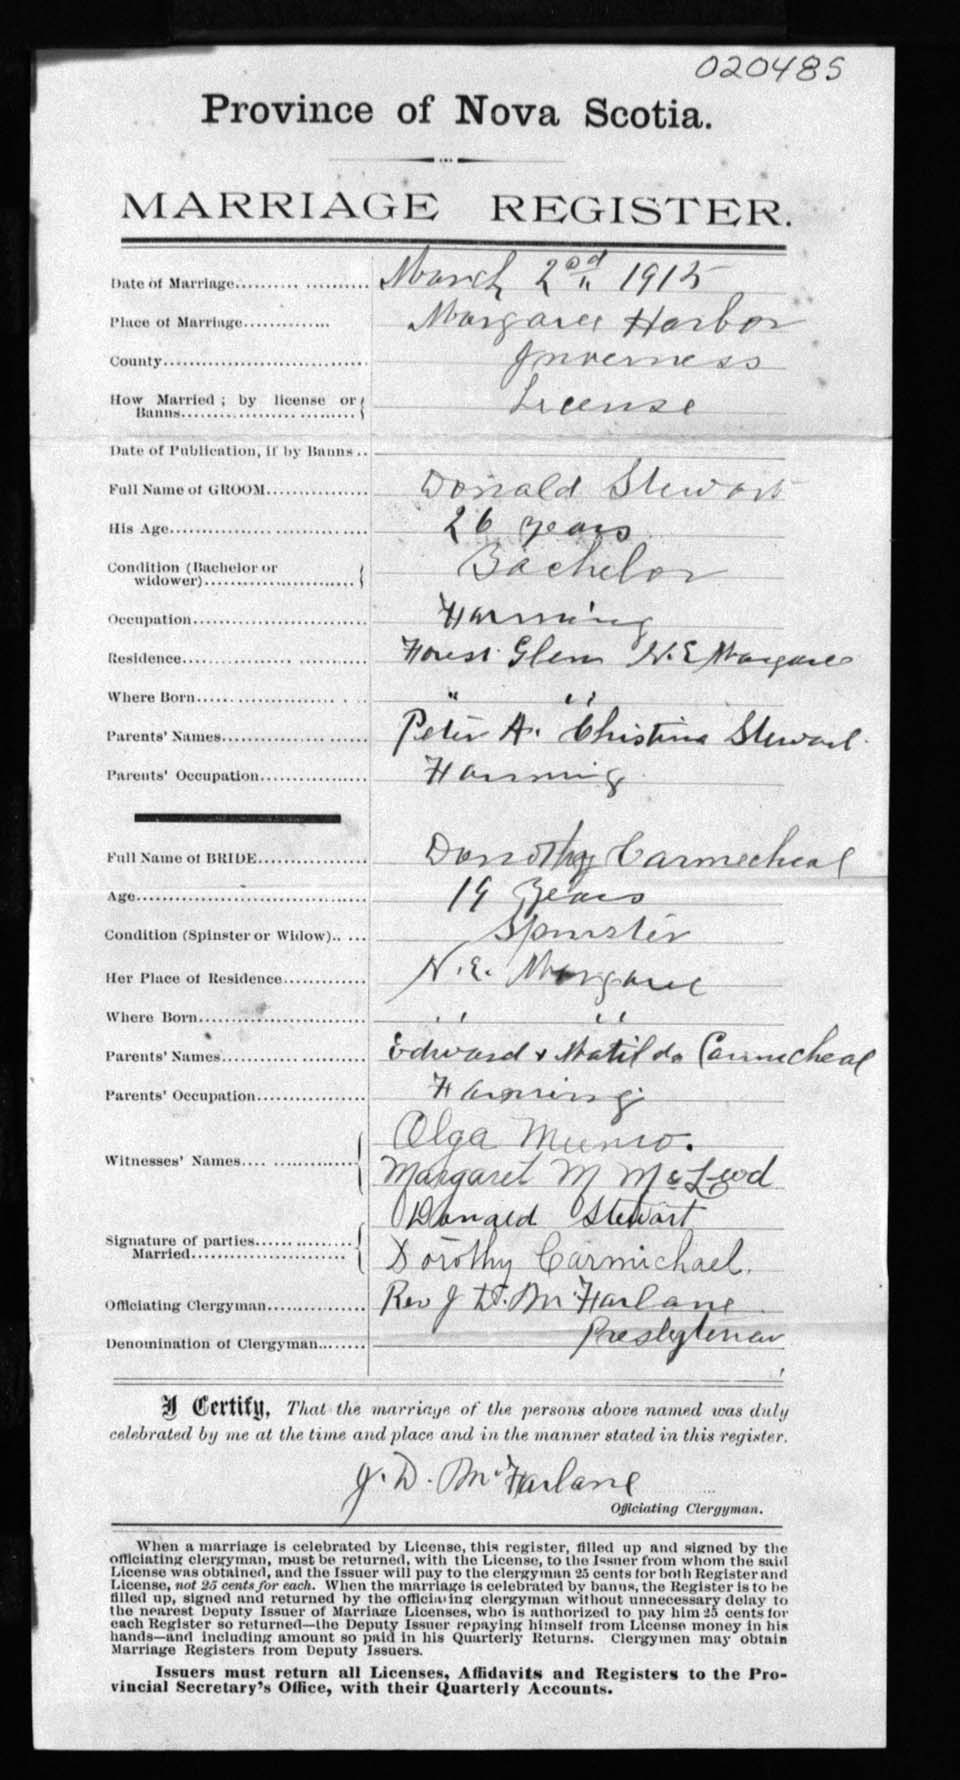 020485
Province of Nova Scotia.
MARRIAGE REGISTER.
Date of Marriage.......... March 2nd 1915
Place of Marriage............. Margaree Harbor
County............................. Inverness
How Married; by license or Banns.......................... License
Date of Publication, if by Banns ..
Full Name of GROOM............... Donald Stewart
His Age............................. 26 years
Condition (Bachelor or widower)........................ Bachelor
Occupation.......................... Farming
Residence.......................... Forest Glen N.E Margaree
Where Born........................ " "
Parents' Names..................... Peter A. Christina Stewart
Parents' Occupation................ Farming
Full Name of BRIDE................ Dorothy Carmecheal
Age.................................. 19 Years
Condition (Spinster or Widow).. .... Spinster
Her Place of Residence............. N. E. Margaree
Where Born........................ " "
Parents' Names..................... Edward & Matilda Carmicheal
Parents' Occupation................ Farming
Witnesses' Names.... .............. Olga Munro.
Margaret M McLeod
Signature of parties Married....................... Donald Stewart
Dorothy Carmichael.
Officiating Clergyman............... Rev J D. McFarlane
Denomination of Clergyman....... Presbyterian
I Certify, That the marriage of the persons above named was duly
celebrated by me at the time and place and in the manner stated in this register.
J. D. McFarlane
Officiating Clergyman.
When a marriage is celebrated by License, this register, filled up and signed by the
officiating clergyman, must be returned, with the License, to the Issuer from whom the said
License was obtained, and the Issuer will pay to the clergyman 25 cents for both Register and
License, not 25 cents for each. When the marriage is celebrated by banns, the Register is to be
filled up, signed and returned by the officiating clergyman without unnecessary delay to
the nearest Deputy Issuer of Marriage Licenses, who is authorized to pay him 25 cents for
each Register so returned—the Deputy Issuer repaying himself from License money in his
hands—and including amount so paid in his Quarterly Returns. Clergymen may obtain
Marriage Registers from Deputy Issuers.
Issuers must return all Licenses, Affidavits and Registers to the Pro-
vincial Secretary's Office, with their Quarterly Accounts.